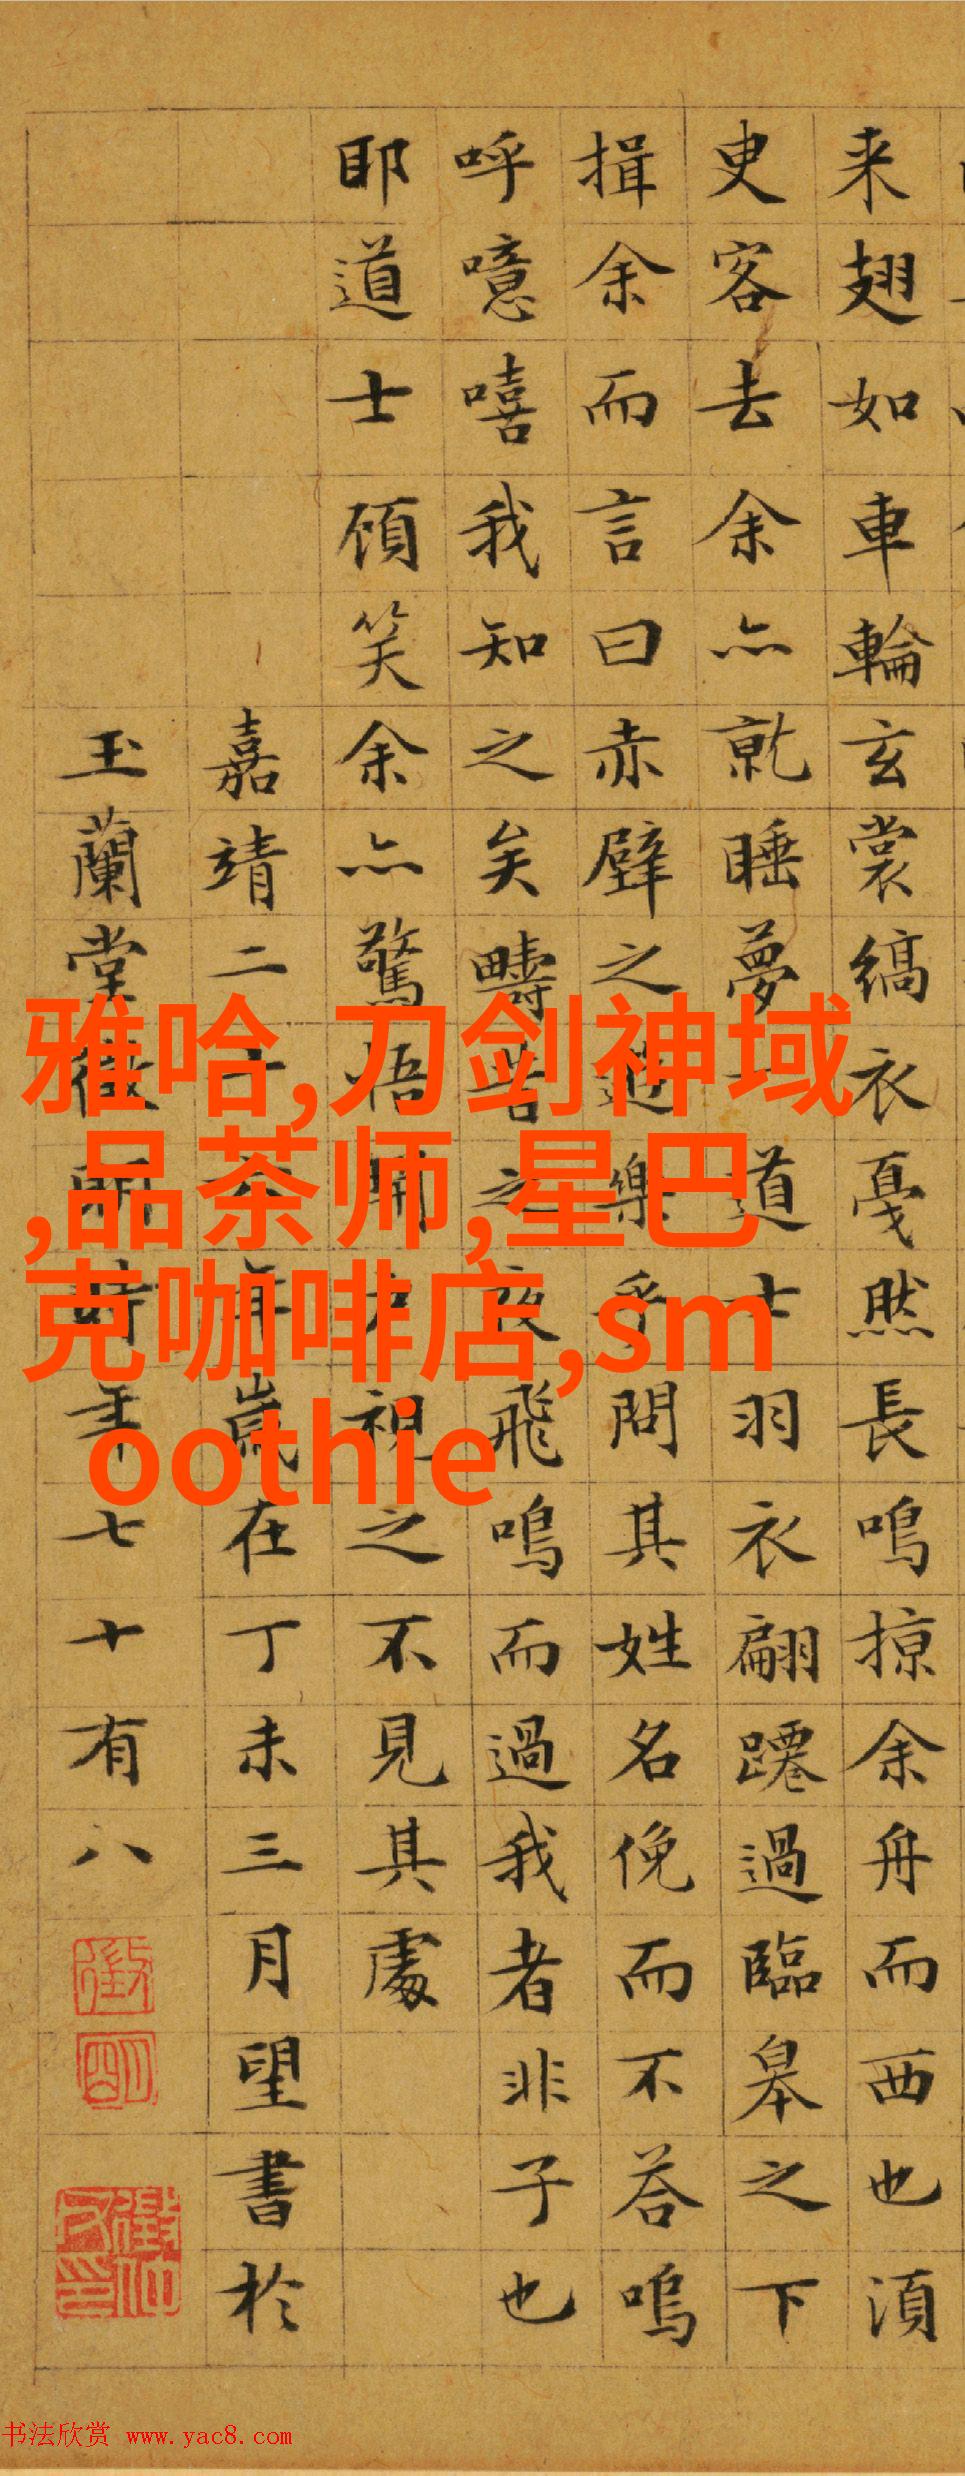 来翅如車輪玄裳縞衣戛然長鳴掠余舟而西也湏
臾客去余亦就睡夢一道士羽衣翩躚過臨皋之下
揖余而言曰赤壁之遊樂乎問其姓名俛而不荅嗚
呼噫嘻我知之矣疇昔之夜飛鳴而過我者非子也
耶道士顧笑余亦驚悟開户視之不見其處
嘉靖二十六年歲在丁未三月望書於
玉蘭堂徵明時年七十有八
徵
明
雅哈,刀剑神域
,品茶师,星巴
克咖啡店,sm
oothie
书法欣赏 www.yac8.com